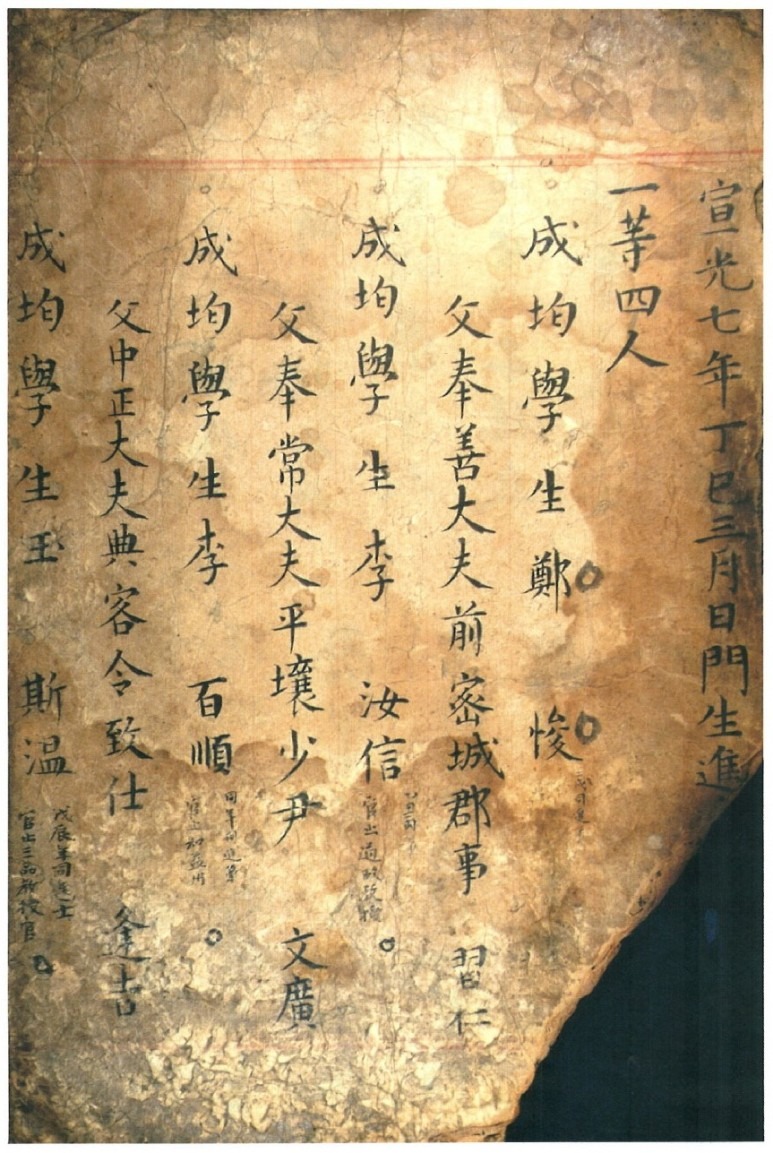 宣光七年丁巳三月日門生進
一等四人
成均學生鄭 悛
父奉善大夫前密城郡事 習仁
成均學生李 汝信
父奉常大夫平壤少尹 文廣
成均學生李 百順
父中正大夫典客令致仕 逢吉
成均學生玉 斯温
戊辰年同進士
官出三品